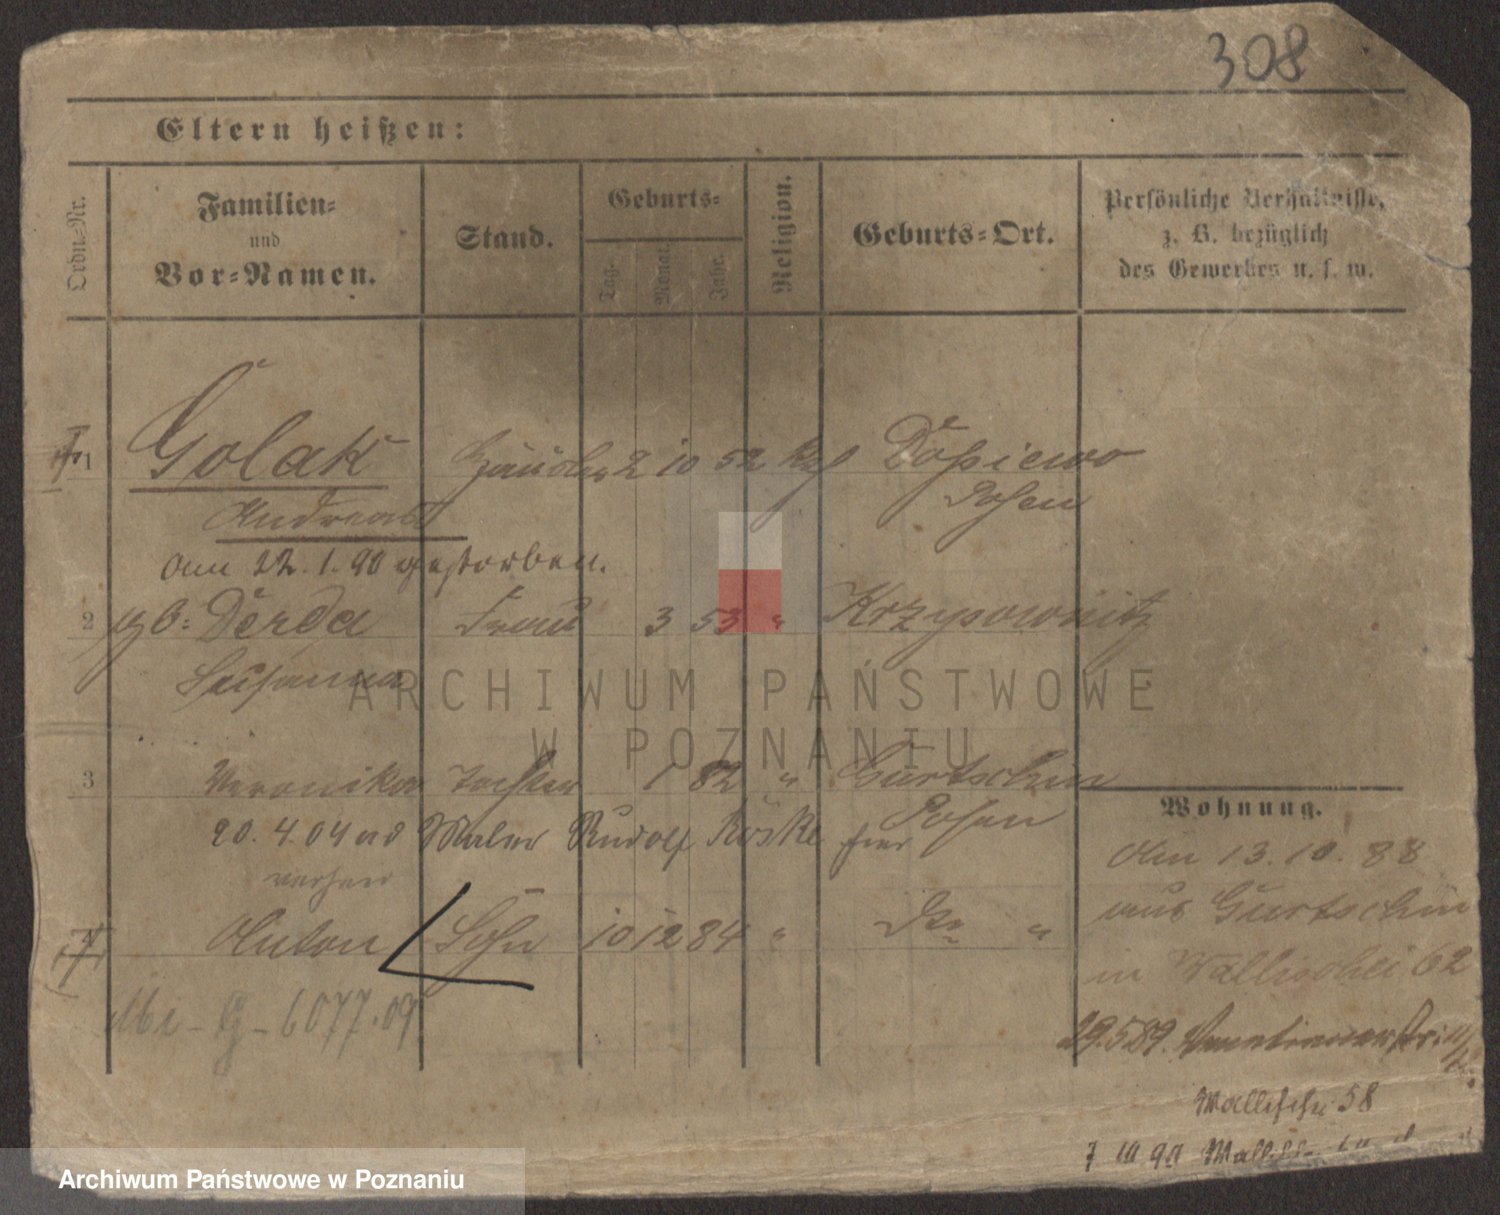 308
Eltern heißen:
Ordn.-Nr. Familien- und Vor-Namen. Stand. Geburts- Tag. Monat. Jahr. Religion. Geburts-Ort. Persönliche Verhältnisse, z. B. bezüglich des Gewerbes u. s. w.
1 Golak Händler 2 10 52 Dopiewo
Andreas Posen
am 22.1.90 gestorben.
2 gb: Derda Frau 3 53 "
Susanna
ARCHIWUM PAŃSTWOWE
W POZNANIU
3 Veronika Tochter 1 82 " Gurtschin
Posen
20.4.04 Maler Rudolf hier
Wohnung.
Am 13.10.88
aus Gurtschin
in Wallischei 62
4 Anton Sohn 10 12 84 " "
G-6077.09
29.5.89.
Wallischei 58
7 10 90
Archiwum Państwowe w Poznaniu